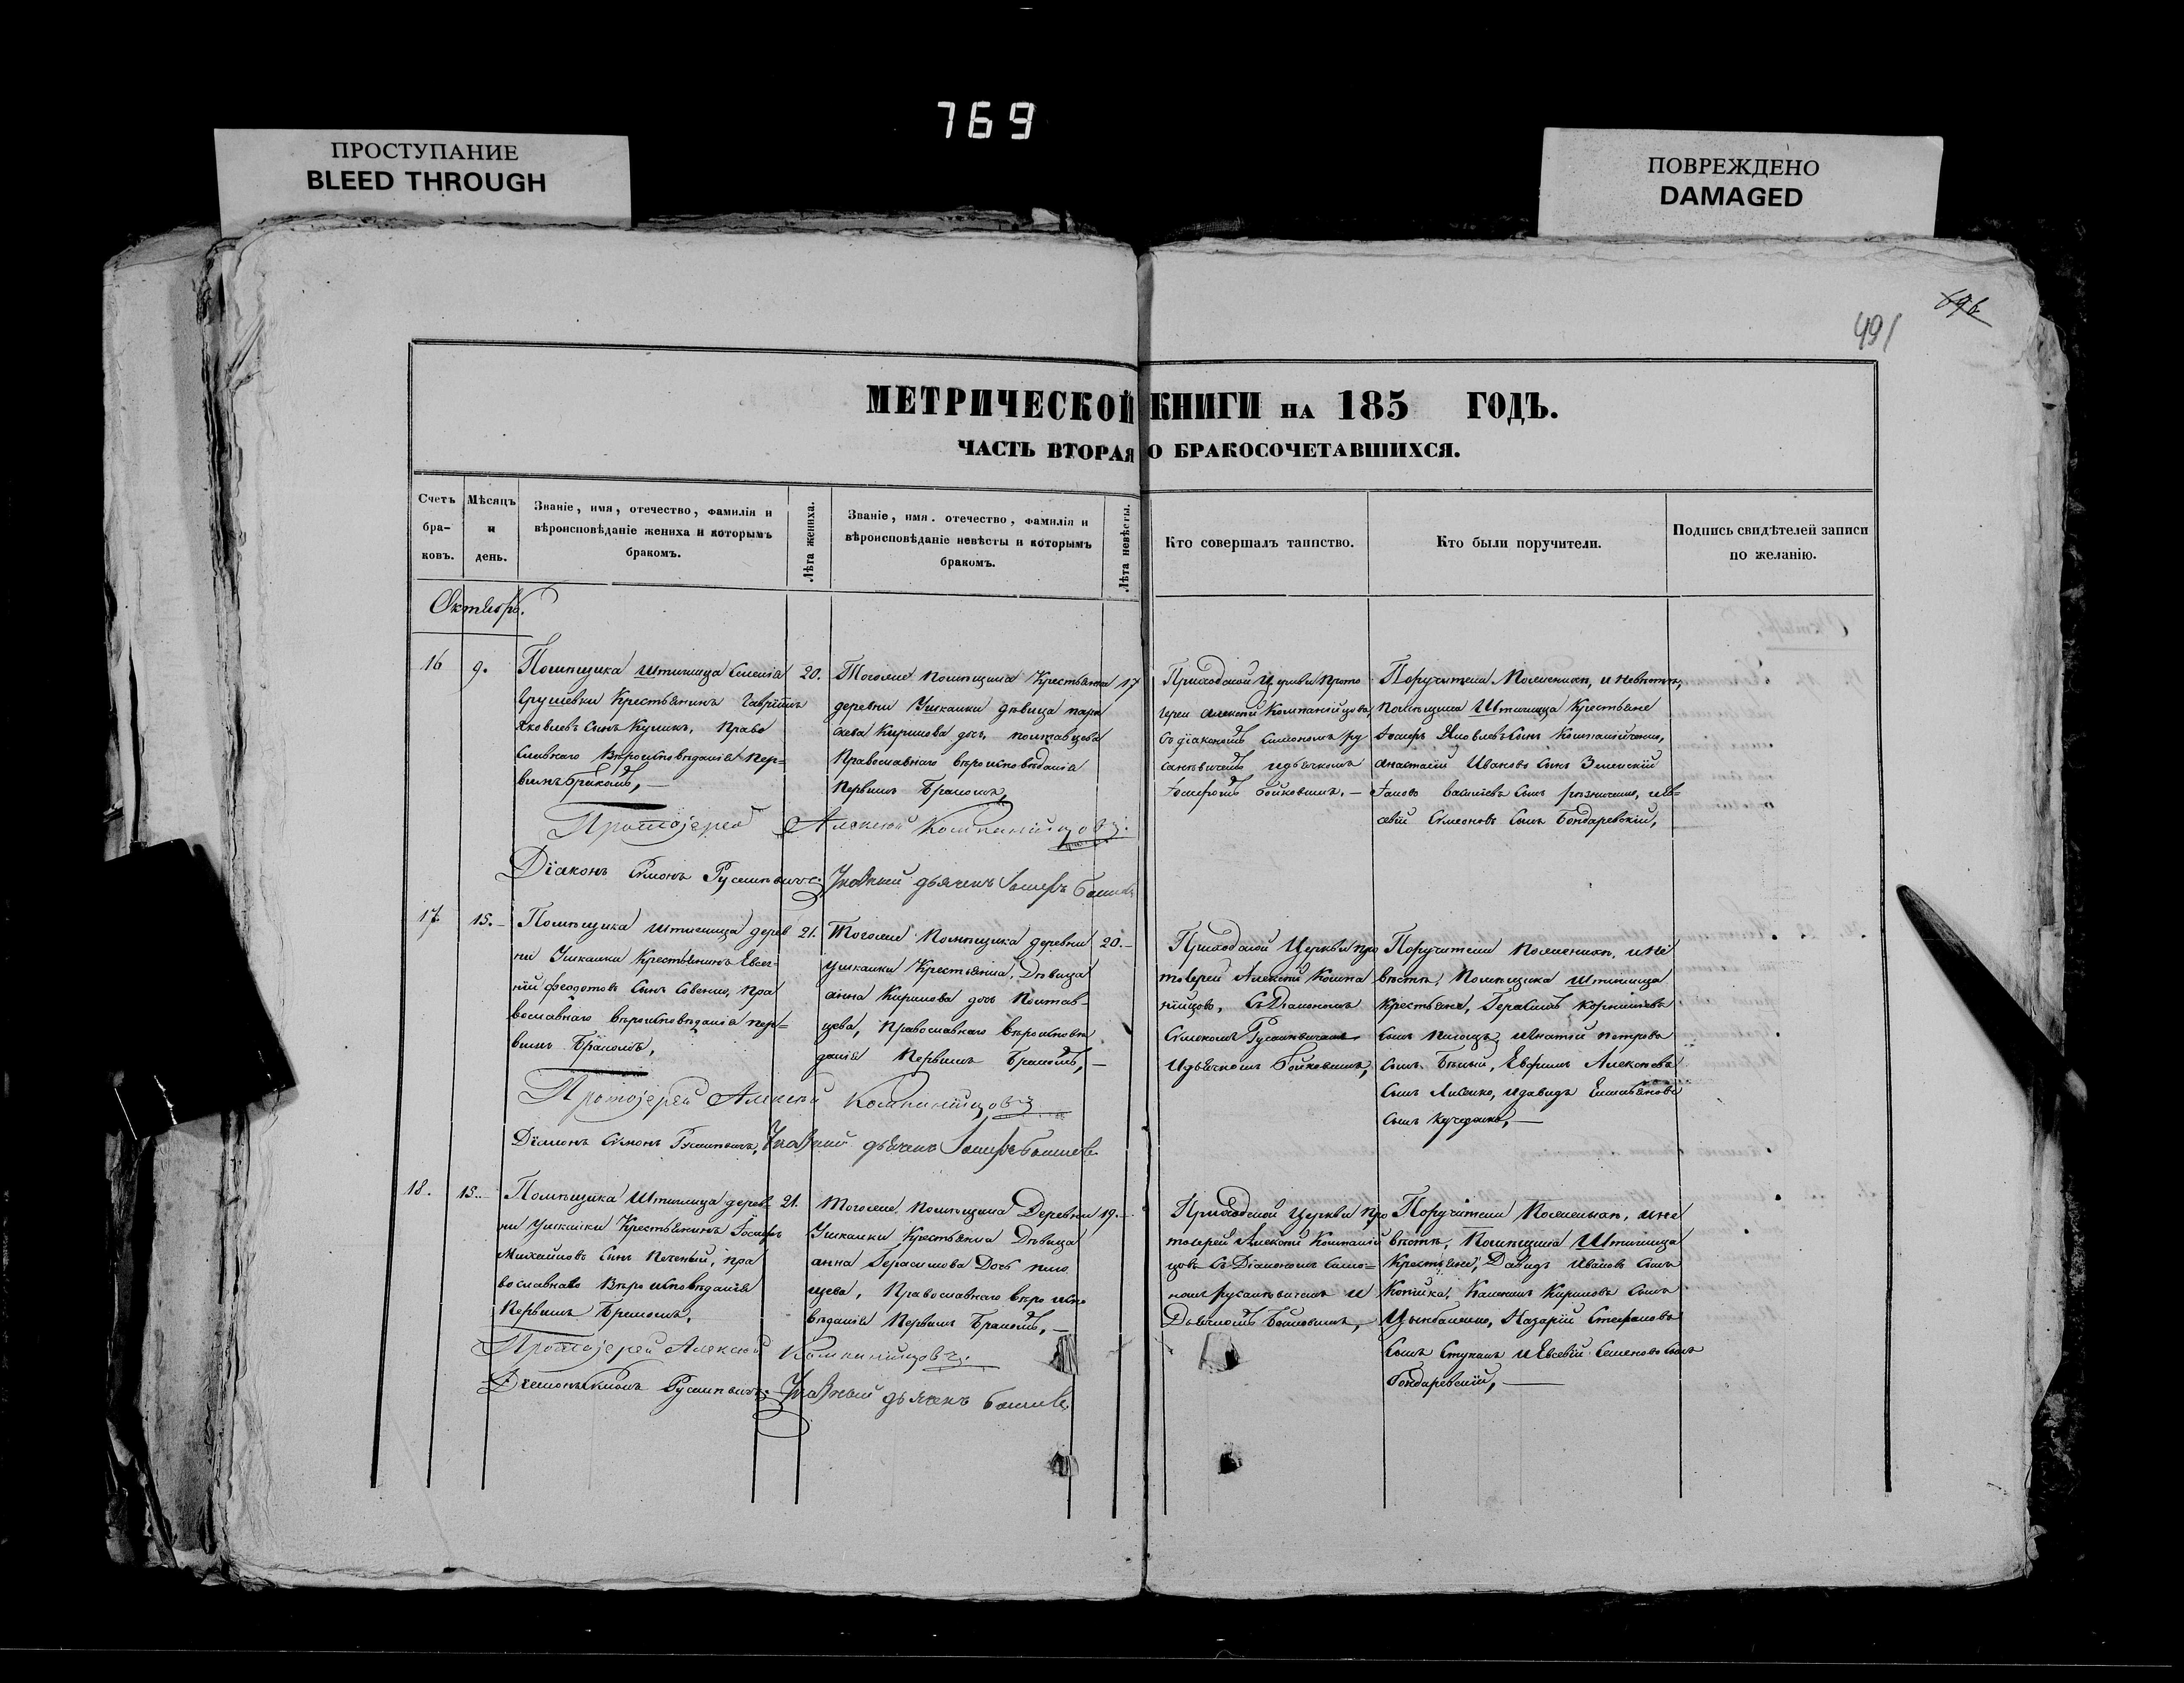 769
ПРОСТУПАНИЕ
BLEED THROUGH
ПОВРЕЖДЕНО
DAMAGED
491
МЕТРИЧЕСКОЙ КНИГИ НА 185 ГОДЪ.
ЧАСТЬ ВТОРАЯ О БРАКОСОЧЕТАВШИХСЯ.
Счетъ
бра-
ковъ.
Мѣсяцъ
и
день.
Званіе, имя, отечество, фамилія и
вѣроисповѣданіе жениха и которымъ
бракомъ.
Лѣта жениха.
Званіе, имя. отечество, фамилія и
вѣроисповѣданіе невѣсты и которымъ
бракомъ.
Лѣта невѣсты.
Кто совершалъ таинство.
Кто были поручители.
Подпись свидѣтелей записи
по желанію.
Октябрь.
16
9.
Помѣщика Штилица
Крестьянинъ Гавріилъ
Яковлевъ сынъ Куликъ, Право
славнаго Вѣроисповѣданія пер=
вымъ бракомъ,
20.
Тогоже помѣщика Крестьянка
деревни Ушкалки дѣвица пара
Кирилова дочь полтавцева
Православнаго вѣроисповѣданія
первымъ бракомъ,
17
Приходской Церкви Прото
іерей Алексій Компанійцовъ,
съ діакономъ Симономъ Ру
идьячкомъ
Іосифомъ Бойковымъ. —
Поручители По женихѣ, и невѣстѣ,
помѣщика Штилица Крестьяне
Іосифъ Яковлевъ сынъ
Анастасій Ивановъ сынъ Зеленскій
Яковъ Василіевъ сынъ
Симеоновъ сынъ Бондаревскій,
Протоіерей Алексій Компанійцовъ.
Діаконъ Симонъ
Указный дьячекъ Іосифъ
17.
15. —
Помѣщика Штилица дерев
ни Ушкалки Крестьянинъ Евсе-
ній Феодотовъ сынъ Совенко, Пра
вославнаго вѣроисповѣданія пер=
вымъ бракомъ,
21.
Тогоже Помѣщика деревни
Ушкалки Крестьянка, Дѣвица
анна Кирилова дочь Полтав-
цева, Православнаго вѣроисповѣ
данія Первымъ бракомъ, —
20. —
Приходской Церкви про
тоіерей Алексій Компа
нійцовъ, съ Діакономъ
Симономъ
Идьячкомъ Бойковымъ,
Поручители По женихѣ, и не
вѣстѣ, Помѣщика Штилица
Крестьяне, Герасимъ Корниліевъ
сынъ Игнатій Петровъ
сынъ Бѣлый, Евфимъ Алексѣевъ
сынъ Лисенко, идавидъ
сынъ —
Протоіерей Алексій Компанійцовъ
Діаконъ Симонъ
Указный дьячекъ Іосифъ
18.
15. —
Помѣщика Штилица дерев-
ни Ушкалки Крестьянинъ Іосифъ
Михайловъ сынъ Печеный, пра
вославнаго Вѣроисповѣданія
Первымъ бракомъ,
21.
Тогоже, помѣщика Деревни
Ушкалки Крестьянка Дѣвица
анна Герасимова Дочь
Православнаго вѣро испо
вѣданія Первымъ бракомъ, —
19. —
Приходской Церкви Про
тоіерей Алексій Компаній
цовъ съ Діакономъ Симо=
номъ и
Дьячкомъ Бойковымъ,
Поручители По женихѣ, и не
вѣстѣ, Помѣщика Штилица
Крестьяне, Давидъ Ивановъ сынъ
Кириловъ сынъ
Цымбаленко, Назарій Стефановъ
сынъ и Евсевій Семеновъ сынъ
Бондаревскій, —
Протоіерей Алексій Компанійцовъ.
Діаконъ Симонъ
Указный дьячекъ